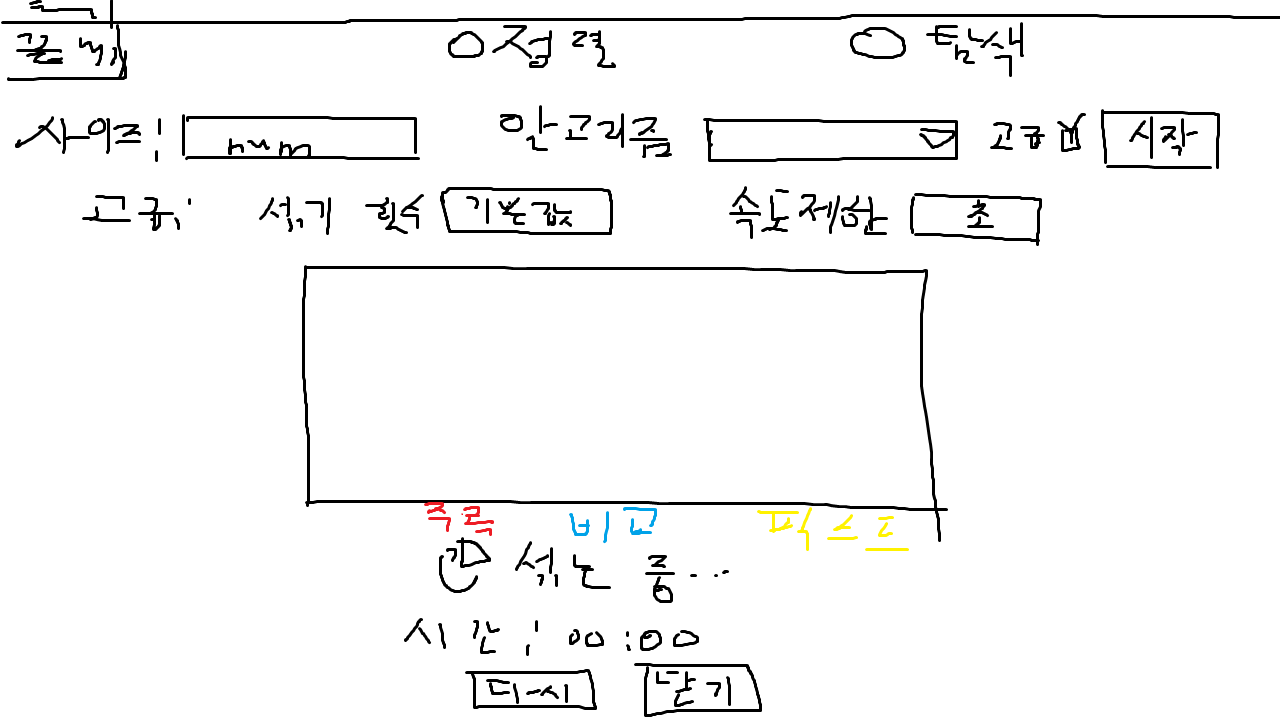 준비
○정렬 ○탐색
사이즈: num 알고리즘 고급 시작
고급: 섞기 횟수 기본값 속도제한 초
주목 비교 픽스도
섞는 중...
시간: 00:00
다시 닫기